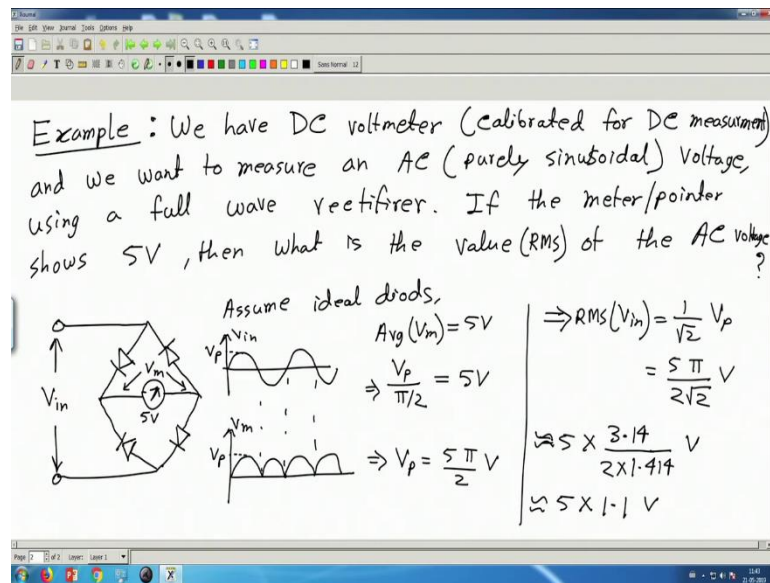 Xournal
File Edit View Journal Tools Options Help
Sans Normal 12
Example : We have DC voltmeter (calibrated for DC measurment)
and we want to measure an AC (purely sinusoidal) Voltage,
using a full wave rectifirer. If the meter/pointer
shows 5V, then what is the value (RMS) of the AC voltage
?
Assume ideal diods,
Vin
Vm
5V
Vin
Vp
Vm
Vp
Avg (Vm) = 5V
⇒ Vp / π/2 = 5V
⇒ Vp = 5 π / 2 V
⇒ RMS (Vin) = 1 / √2 Vp
= 5 π / 2√2 V
≈ 5 × 3.14 / 2×1.414 V
≈ 5 × 1.1 V
Page 2 of 2 Layer: Layer 1
11:43